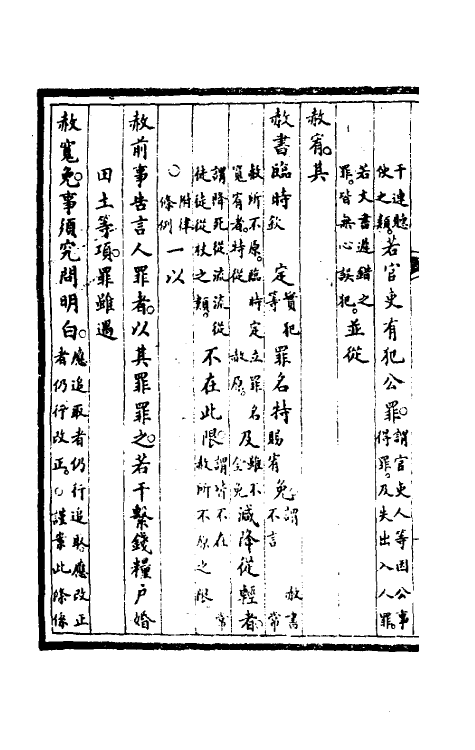 干連聽使之類。若官吏有犯公罪。謂官吏人等因公事得罪。及失出入人罪。
若文書遲錯之罪。皆無心誤犯。並從
赦宥。其
赦書臨時欽定實犯等罪名特賜宥免。謂赦書不言常
赦所不原。臨時定立罪名寬宥者。特從赦原。及雖不全免減降從輕者。
謂降死從流流從徒徒從杖之類。不在此限。謂皆不在常赦所不原之限
○附律條例一以
赦前事告言人罪者。以其罪罪之。若干繫錢糧户婚
田土等項。罪雖遇
赦寬免。事須究問明白。應追取者仍行追取應改正者仍行改正。○謹案此條係